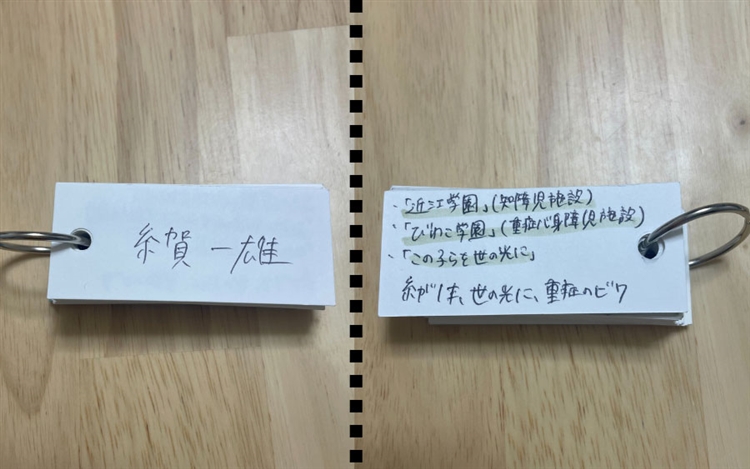 糸賀 一雄
・「近江学園」(知障児施設)
・「びわこ学園」(重症心身障児施設)
・「この子らを世の光に」
糸がは、世の光に、重症のビワ